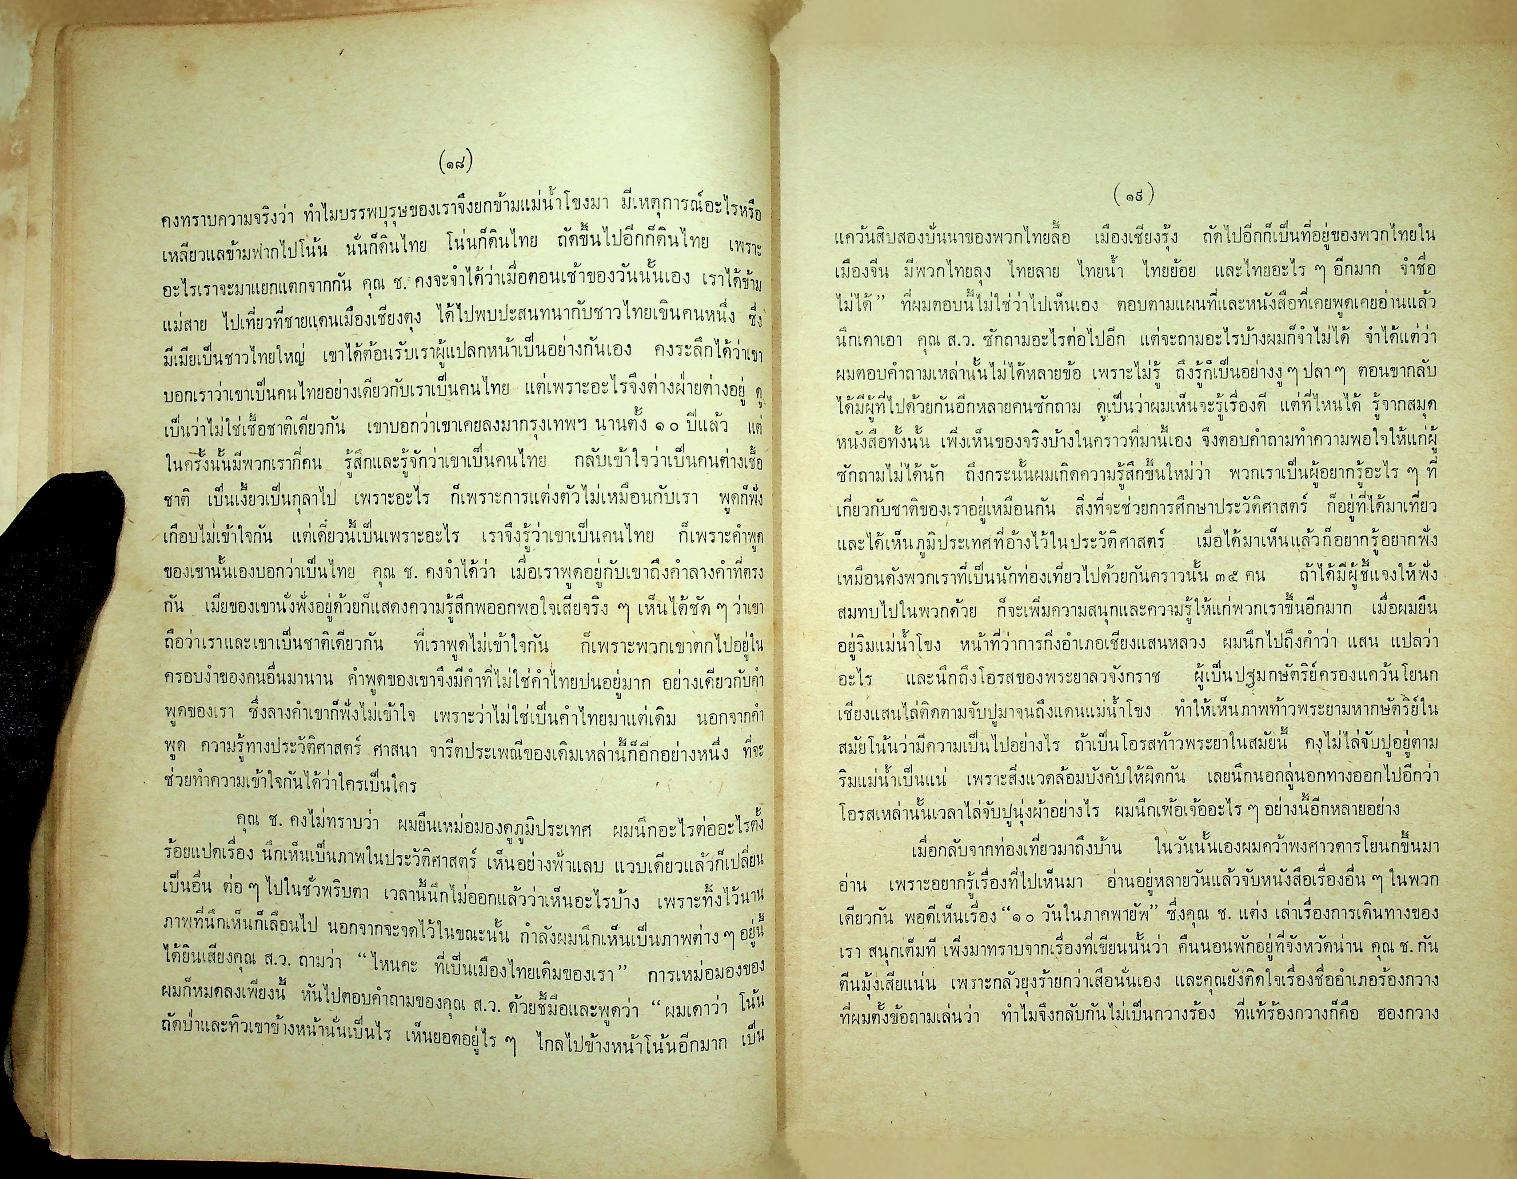 (๑๘)
คงทราบความจริงว่า ทำไมบรรพบุรุษของเราจึงยกข้ามแม่น้ำโขงมา มีเหตุการณ์อะไรหรือ
เหลียวแลข้ามฟากไปโน้น นั่นก็ดินไทย โน่นก็ดินไทย ถัดขึ้นไปอีกก็ดินไทย เพราะ
อะไรเราจะมาแยกแตกจากกัน คุณ ช. คงจะจำได้ว่าเมื่อตอนเช้าของวันนั้นเอง เราได้ข้าม
แม่สาย ไปเที่ยวที่ชายแดนเมืองเชียงตุง ได้ไปพบปะสนทนากับชาวไทยเขินคนหนึ่ง ซึ่ง
มีเมียเป็นชาวไทยใหญ่ เขาได้ต้อนรับเราผู้แปลกหน้าเป็นอย่างกันเอง คงระลึกได้ว่าเขา
บอกเราว่าเขาเป็นคนไทยอย่างเดียวกับเราเป็นคนไทย แต่เพราะอะไรจึงต่างฝ่ายต่างอยู่ ดู
เป็นว่าไม่ใช่เชื้อชาติเดียวกัน เขาบอกว่าเขาเคยลงมากรุงเทพฯ นานตั้ง ๑๐ ปีแล้ว แต่
ในครั้งนั้นมีพวกเรากี่คน รู้สึกและรู้จักว่าเขาเป็นคนไทย กลับเข้าใจว่าเป็นคนต่างเชื้อ
ชาติ เป็นเงี้ยวเป็นกุลาไป เพราะอะไร ก็เพราะการแต่งตัวไม่เหมือนกับเรา พูดก็ฟัง
เกือบไม่เข้าใจกัน แต่เดี๋ยวนี้เป็นเพราะอะไร เราจึงรู้ว่าเขาเป็นคนไทย ก็เพราะคำพูด
ของเขานั้นเองบอกว่าเป็นไทย คุณ ช. คงจำได้ว่า เมื่อเราพูดอยู่กับเขาถึงคำลางคำที่ตรง
กัน เมียของเขานั่งฟังอยู่ด้วยก็แสดงความรู้สึกพออกพอใจเสียจริง ๆ เห็นได้ชัด ๆ ว่าเขา
ถือว่าเราและเขาเป็นชาติเดียวกัน ที่เราพูดไม่เข้าใจกัน ก็เพราะพวกเขาตกไปอยู่ใน
ครอบงำของคนอื่นมานาน คำพูดของเขาจึงมีคำที่ไม่ใช่คำไทยปนอยู่มาก อย่างเดียวกับคำ
พูดของเรา ซึ่งลางคำเขาก็ฟังไม่เข้าใจ เพราะว่าไม่ใช่เป็นคำไทยมาแต่เดิม นอกจากคำ
พูด ความรู้ทางประวัติศาสตร์ ศาสนา จารีตประเพณีของเดิมเหล่านี้ก็อีกอย่างหนึ่ง ที่จะ
ช่วยทำความเข้าใจกันได้ว่าใครเป็นใคร
คุณ ช. คงไม่ทราบว่า ผมยืนเหม่อมองดูภูมิประเทศ ผมนึกอะไรต่ออะไรตั้ง
ร้อยแปดเรื่อง นึกเห็นเป็นภาพในประวัติศาสตร์ เห็นอย่างฟ้าแลบ แวบเดียวแล้วก็เปลี่ยน
เป็นอื่น ต่อ ๆ ไปในชั่วพริบตา เวลานี้นึกไม่ออกแล้วว่าเห็นอะไรบ้าง เพราะทิ้งไว้นาน
ภาพที่นึกเห็นก็เลือนไป นอกจากจะจดไว้ในขณะนั้น กำลังผมนึกเห็นเป็นภาพต่าง ๆ อยู่นี้
ได้ยินเสียงคุณ ส.ว. ถามว่า “ไหนคะ ที่เป็นเมืองไทยเดิมของเรา” การเหม่อมองของ
ผมก็หมดลงเพียงนี้ หันไปตอบคำถามของคุณ ส.ว. ด้วยชี้มือและพูดว่า “ผมเดาว่า โน้น
ถัดป่าและทิวเขาข้างหน้านั่นเป็นไร เห็นยอดอยู่ไร ๆ ไกลไปข้างหน้าโน้นอีกมาก เป็น
(๑๙)
แคว้นสิบสองปันนาของพวกไทยลื้อ เมืองเชียงรุ้ง ถัดไปอีกก็เป็นที่อยู่ของพวกไทยใน
เมืองจีน มีพวกไทยลุง ไทยลาย ไทยน้ำ ไทยย้อย และไทยอะไร ๆ อีกมาก จำชื่อ
ไม่ได้” ที่ผมตอบนี้ไม่ใช่ว่าไปเห็นเอง ตอบตามแผนที่และหนังสือที่เคยพูดเคยอ่านแล้ว
นึกเดาเอา คุณ ส.ว. ซักถามอะไรต่อไปอีก แต่จะถามอะไรบ้างผมก็จำไม่ได้ จำได้แต่ว่า
ผมตอบคำถามเหล่านั้นไม่ได้หลายข้อ เพราะไม่รู้ ถึงรู้ก็เป็นอย่างงู ๆ ปลา ๆ ตอนขากลับ
ได้มีผู้ที่ไปด้วยกันอีกหลายคนซักถาม ดูเป็นว่าผมเห็นจะรู้เรื่องดี แต่ที่ไหนได้ รู้จากสมุด
หนังสือทั้งนั้น เพิ่งเห็นของจริงบ้างในคราวที่มานี้เอง จึงตอบคำถามทำความพอใจให้แก่ผู้
ซักถามไม่ได้นัก ถึงกระนั้นผมเกิดความรู้สึกขึ้นใหม่ว่า พวกเราเป็นผู้อยากรู้อะไร ๆ ที่
เกี่ยวกับชาติของเราอยู่เหมือนกัน สิ่งที่จะช่วยการศึกษาประวัติศาสตร์ ก็อยู่ที่ได้มาเที่ยว
และได้เห็นภูมิประเทศที่อ้างไว้ในประวัติศาสตร์ เมื่อได้มาเห็นแล้วก็อยากรู้อยากฟัง
เหมือนดังพวกเราที่เป็นนักท่องเที่ยวไปด้วยกันคราวนั้น ๓๕ คน ถ้าได้มีผู้ชี้แจงให้ฟัง
สมทบไปในพวกด้วย ก็จะเพิ่มความสนุกและความรู้ให้แก่พวกเราขึ้นอีกมาก เมื่อผมยืน
อยู่ริมแม่น้ำโขง หน้าที่ว่าการกิ่งอำเภอเชียงแสนหลวง ผมนึกไปถึงคำว่า แสน แปลว่า
อะไร และนึกถึงโอรสของพระยาลวจังกราช ผู้เป็นปฐมกษัตริย์ครองแคว้นโยนก
เชียงแสนไล่ติดตามจับปูมาจนถึงแดนแม่น้ำโขง ทำให้เห็นภาพท้าวพระยามหากษัตริย์ใน
สมัยโน้นว่ามีความเป็นไปอย่างไร ถ้าเป็นโอรสท้าวพระยาในสมัยนี้ คงไม่ไล่จับปูอยู่ตาม
ริมแม่น้ำเป็นแน่ เพราะสิ่งแวดล้อมบังคับให้ผิดกัน เลยนึกนอกลู่นอกทางออกไปอีกว่า
โอรสเหล่านั้นเวลาไล่จับปูนุ่งผ้าอย่างไร ผมนึกเพ้อเจ้ออะไร ๆ อย่างนี้อีกหลายอย่าง
เมื่อกลับจากท่องเที่ยวมาถึงบ้าน ในวันนั้นเองผมคว้าพงศาวดารโยนกขึ้นมา
อ่าน เพราะอยากรู้เรื่องที่ไปเห็นมา อ่านอยู่หลายวันแล้วจับหนังสือเรื่องอื่น ๆ ในพวก
เดียวกัน พอดีเห็นเรื่อง “๑๐ วันในภาคพายัพ” ซึ่งคุณ ช. แต่ง เล่าเรื่องการเดินทางของ
เรา สนุกเต็มที เพิ่งมาทราบจากเรื่องที่เขียนนั้นว่า คืนนอนพักอยู่ที่จังหวัดน่าน คุณ ช. กัน
ตีนมุ้งเสียแน่น เพราะกลัวยุงร้ายกว่าเสือนั่นเอง และคุณยังติดใจเรื่องชื่ออำเภอร้องกวาง
ที่ผมตั้งข้อถามเล่นว่า ทำไมจึงกลับกันไม่เป็นกวางร้อง ที่แท้ร้องกวางก็คือ ฮองกวาง